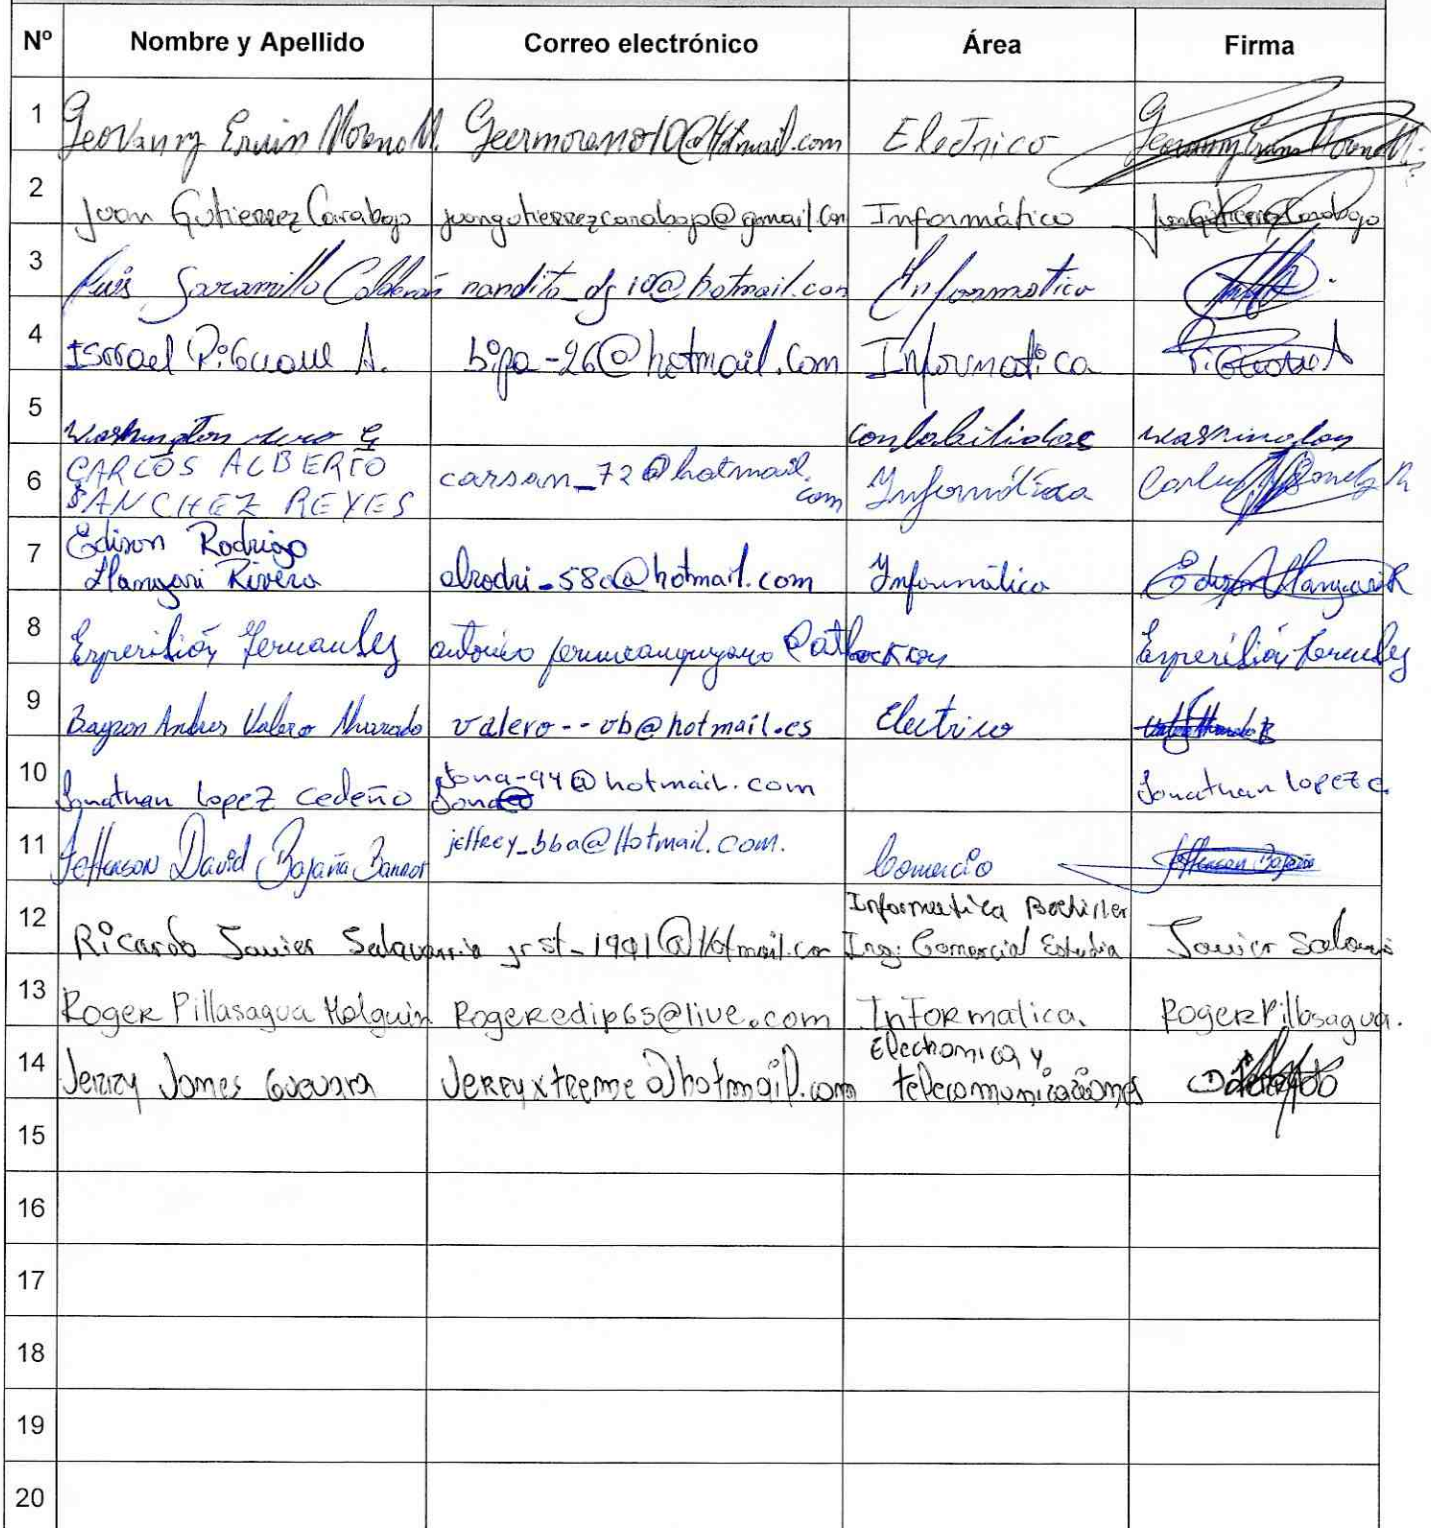 Nº Nombre y Apellido Correo electrónico Área Firma
1 Geovanny Erwin Moreno M. Geermoreno10@Hotmail.com Electrico
2 Juan Gutierrez Carabajo juangutierrezcarabajo@gmail.com Informático
3 Luis Jaramillo Calderón nandito_dj10@hotmail.com Informatico
4 Isrrael A. bipa-26@hotmail.com Informatica
5 Washington contabilidad washington
6 CARLOS ALBERTO
SANCHEZ REYES carsan_72@hotmail.com Informática
7 Edison Rodrigo
Llanguari Rivera Informático
8 antonio
9 Bayron Andres Valero Alvarado valero--vb@hotmail.es Electrico
10 Jonathan Lopez Cedeño Jona-94@hotmail.com Jonathan Lopez C
11 Jefferson David Bajaña jeffrey_bba@Hotmail.com. Comercio
12 Ricardo Javier Salavarria jrst_1991@Hotmail.com Informatica Bachiller
Ing: Comercial Estudia Javier
13 Roger Pillasagua Holguin Rogeredip65@live.com Informatica. Roger Pillasagua.
14 Jerrzy James Guevara Jerryxtreme@hotmail.com Electronica y
telecomunicaciones
15
16
17
18
19
20